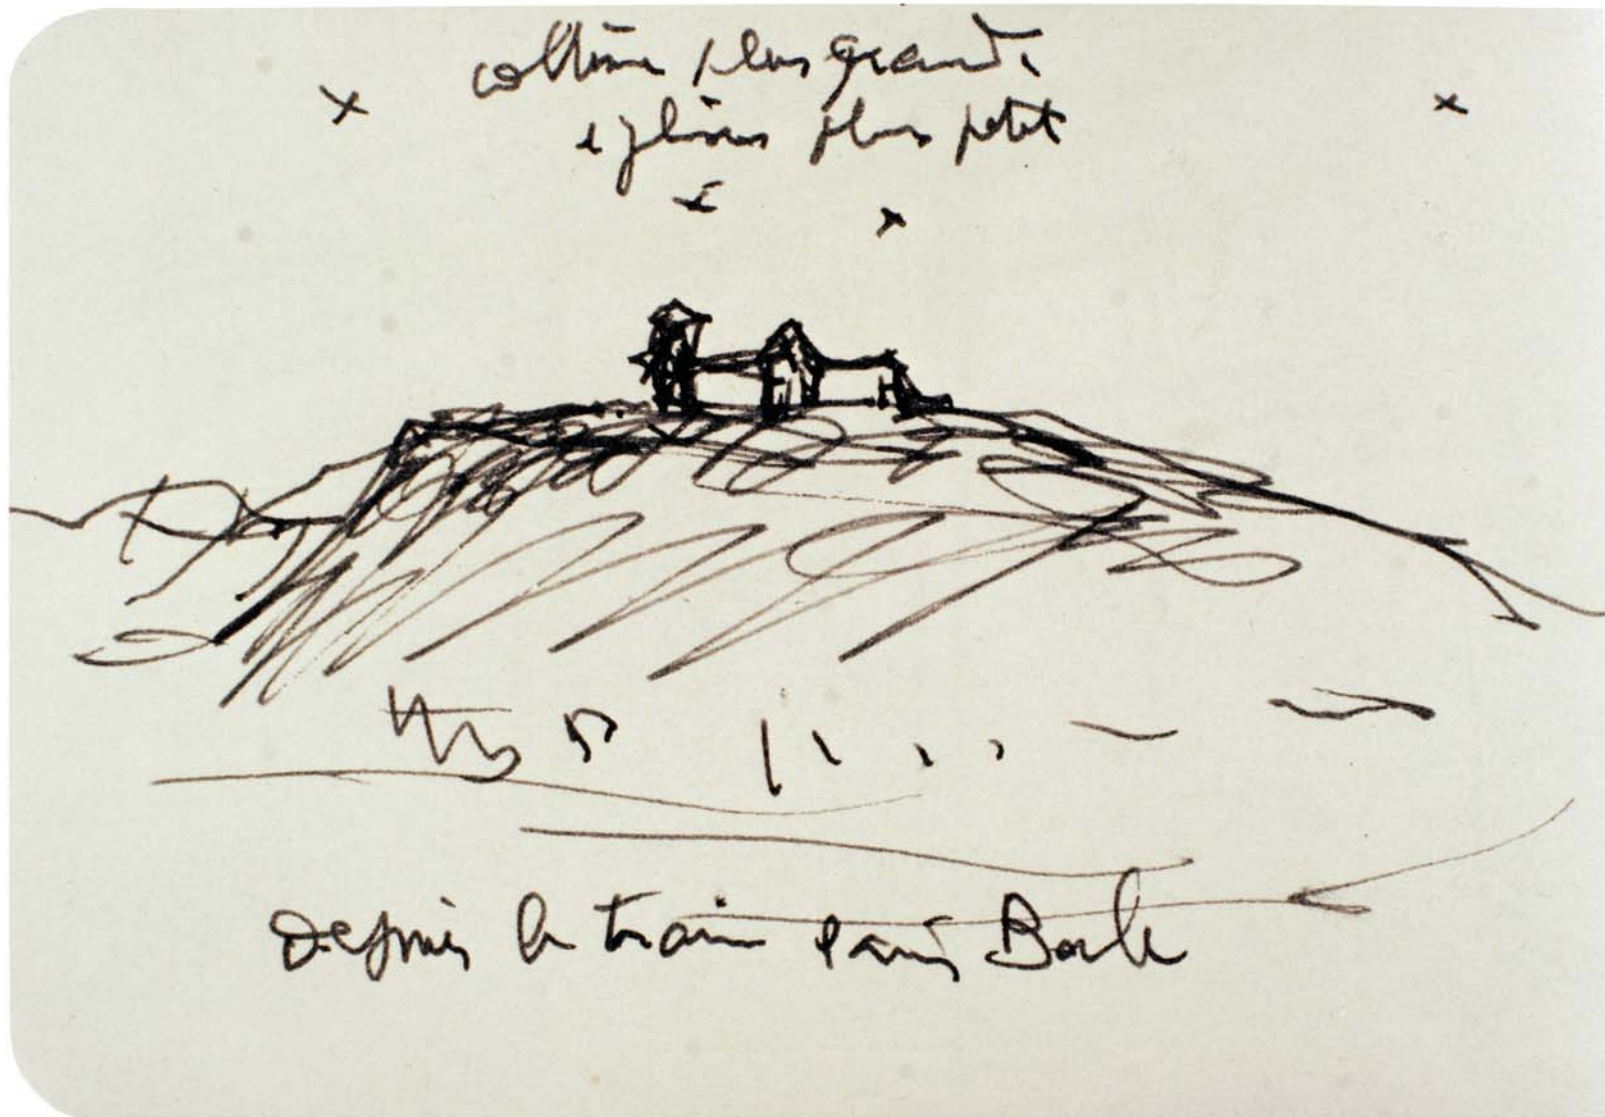 colline plus grande
eglises plus petit
depuis le train Paris Basle